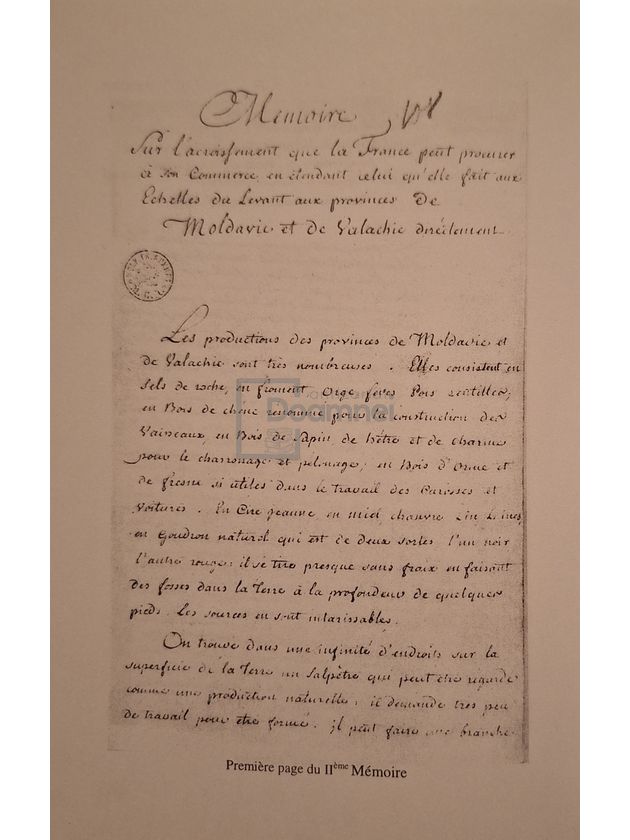 Mémoire
Sur l'acroissement que la France peut procurer
à son Commerce, en étendant celui qu'elle fait aux
Echelles du Levant aux provinces de
Moldavie et de Valachie directement
Les productions des provinces de Moldavie et
de Valachie sont très nombreuses. Elles consistent en
Sels de roche, en froment Orge feves Pois
en Bois de chêne renommé pour la construction des
Vaisseaux, en Bois de Sapin de hêtre et de charme
pour le charronage et ; en Bois d'Orme et
de fresne si utiles dans le travail des Carosses et
Voitures. En Cire jeaune en miel chanvre Lin Laines
en Goudron naturel qui est de deux sortes l'un noir
l'autre rouge; il se tire presque sans fraix en faisant
des fosses dans la Terre à la profondeur de quelques
pieds. Les sources en sont intarissables.
On trouve dans une infinité d'endroits sur la
superficie de la Terre un Salpêtre qui peut être regardé
comme une production naturelle; il demande très peu
de travail pour être formé. il peut faire une branche
Première page du IIème Mémoire
Doamnei